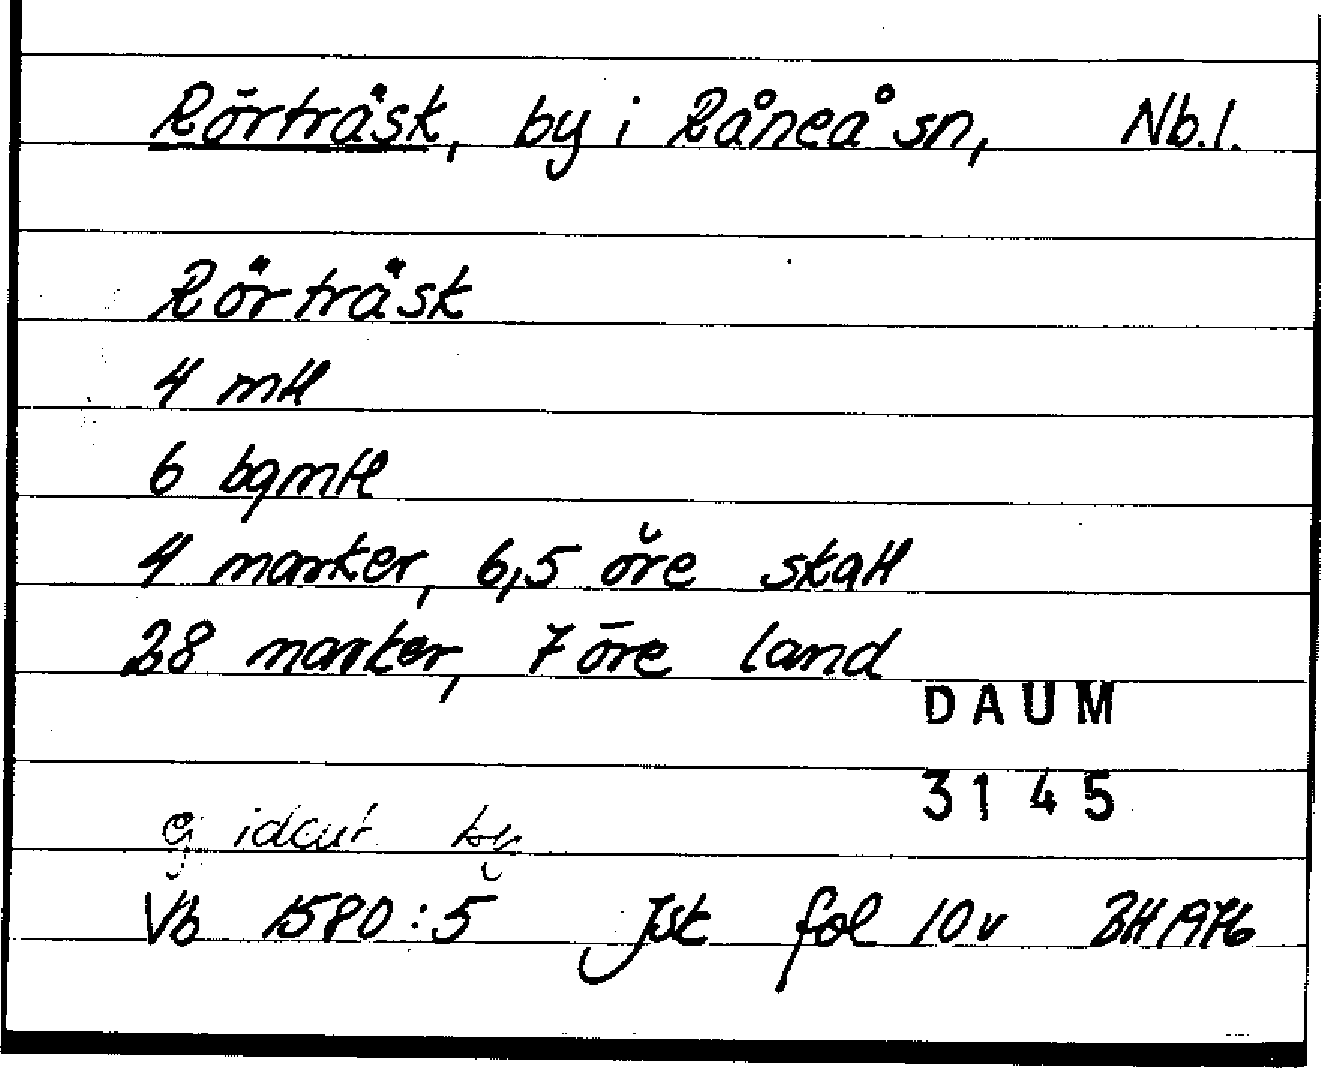 Rörträsk, by i Råneå sn, Nb.l.
Rörträsk
4 mtl
6 bgmtl
4 marker, 6,5 öre skatt
28 marker, 7 öre land
DAUM
3145
ej ident by
Vb 1580:5 Jsk fol 10v BH 1976